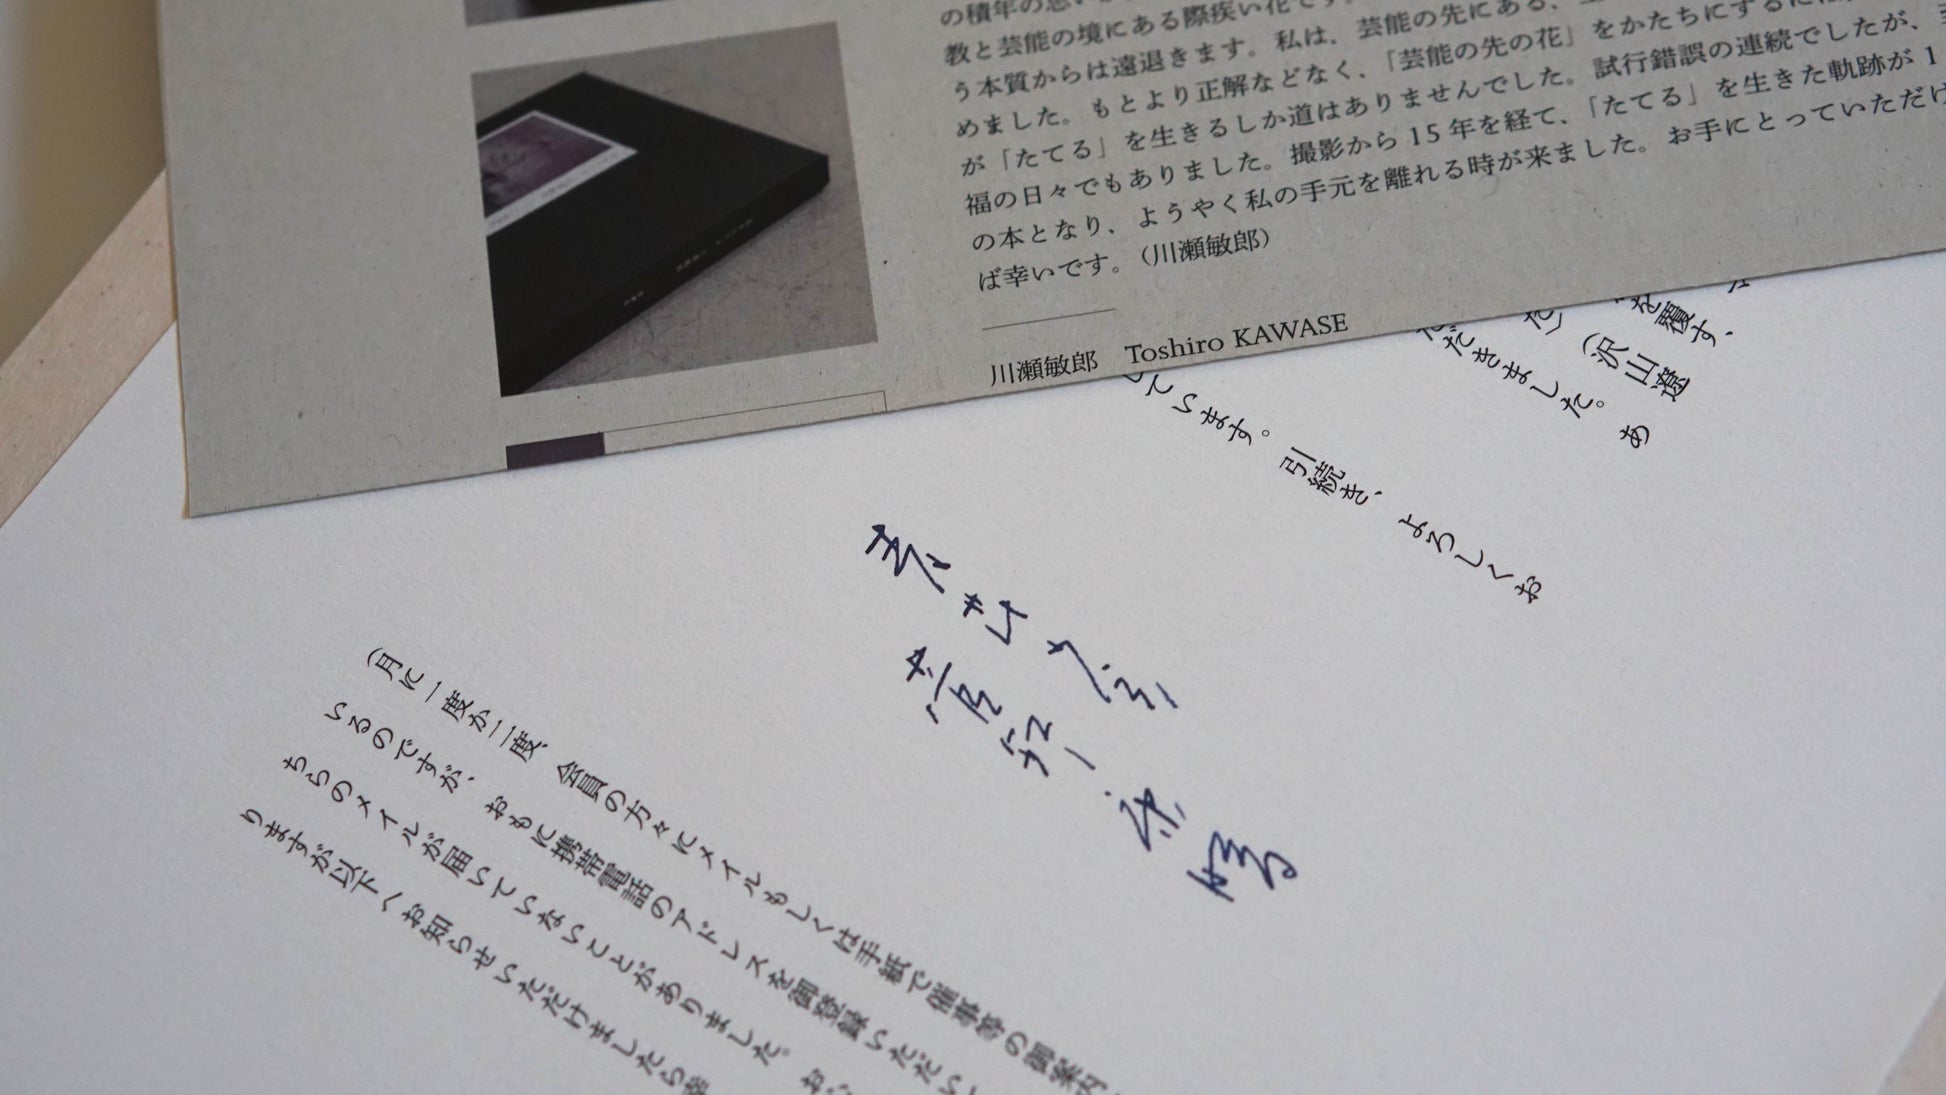 の積年の思いが
教と芸能の境にある際疾い花です。
う本質からは遠退きます。私は、芸能の先にある、
めました。もとより正解などなく、「芸能の先の花」をかたちにするには、
が「たてる」を生きるしか道はありませんでした。試行錯誤の連続でしたが、
福の日々でもありました。撮影から15年を経て、「たてる」を生きた軌跡が1
の本となり、ようやく私の手元を離れる時が来ました。お手にとっていただけ
ば幸いです。（川瀬敏郎）
川瀬敏郎 Toshiro KAWASE
を覆す、
た〉（沢山遼
ただきました。あ
しています。引続き、よろしくお
（月に一度か二度、会員の方々にメイルもしくは手紙で催事等の御案内
いるのですが、おもに携帯電話のアドレスを御登録いただい
ちらのメイルが届いていないことがありました。お
りますが以下へお知らせいただけましたら幸